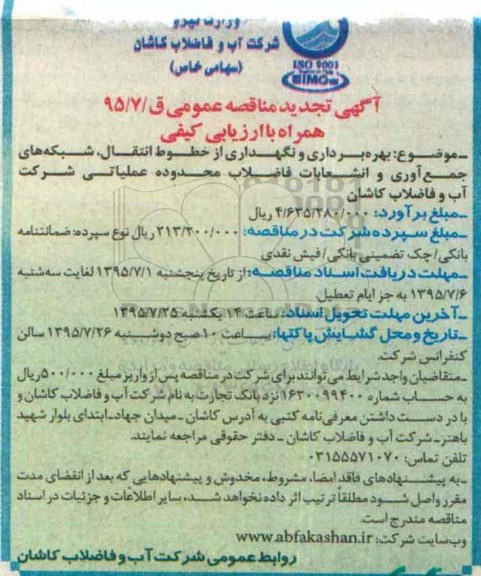 وزارت نیرو
شرکت آب و فاضلاب کاشان
(سهامی خاص)
ISO 9001
SIMC
آگهی تجدید مناقصه عمومی ق/۹۵/۷
همراه با ارزیابی کیفی
ـ موضوع: بهره‌برداری و نگهداری از خطوط انتقال، شبکه‌های
جمع‌آوری و انشعابات فاضلاب محدوده عملیاتی شرکت
آب و فاضلاب کاشان
ـ مبلغ برآورد: ۴/۶۳۵/۲۸۰/۰۰۰ ریال
ـ مبلغ سپرده شرکت در مناقصه: ۲۱۳/۲۰۰/۰۰۰ ریال نوع سپرده: ضمانتنامه
بانکی/ چک تضمینی بانکی/ فیش نقدی
ـ مهلت دریافت اسناد مناقصه: از تاریخ پنجشنبه ۱۳۹۵/۷/۱ لغایت سه‌شنبه
۱۳۹۵/۷/۶ به جز ایام تعطیل
ـ آخرین مهلت تحویل اسناد: ساعت ۱۴ یکشنبه ۱۳۹۵/۷/۲۵
ـ تاریخ و محل گشایش پاکتها: ساعت ۱۰ صبح دوشنبه ۱۳۹۵/۷/۲۶ سالن
کنفرانس شرکت.
ـ متقاضیان واجد شرایط می‌توانند برای شرکت در مناقصه پس از واریز مبلغ ۵۰۰/۰۰۰ ریال
به حساب شماره ۱۶۳۰۰۹۹۴۰۰ نزد بانک تجارت به نام شرکت آب و فاضلاب کاشان و
با در دست داشتن معرفی‌نامه کتبی به آدرس کاشان ـ میدان جهاد ـ ابتدای بلوار شهید
باهنر ـ شرکت آب و فاضلاب کاشان ـ دفتر حقوقی مراجعه نمایند.
تلفن تماس: ۰۳۱۵۵۵۷۱۰۷۰
ـ به پیشنهادهای فاقد امضا، مشروط، مخدوش و پیشنهادهایی که بعد از انقضای مدت
مقرر واصل شود مطلقاً ترتیب اثر داده نخواهد شد، سایر اطلاعات و جزئیات در اسناد
مناقصه مندرج است.
وب‌سایت شرکت: www.abfakashan.ir
روابط عمومی شرکت آب و فاضلاب کاشان